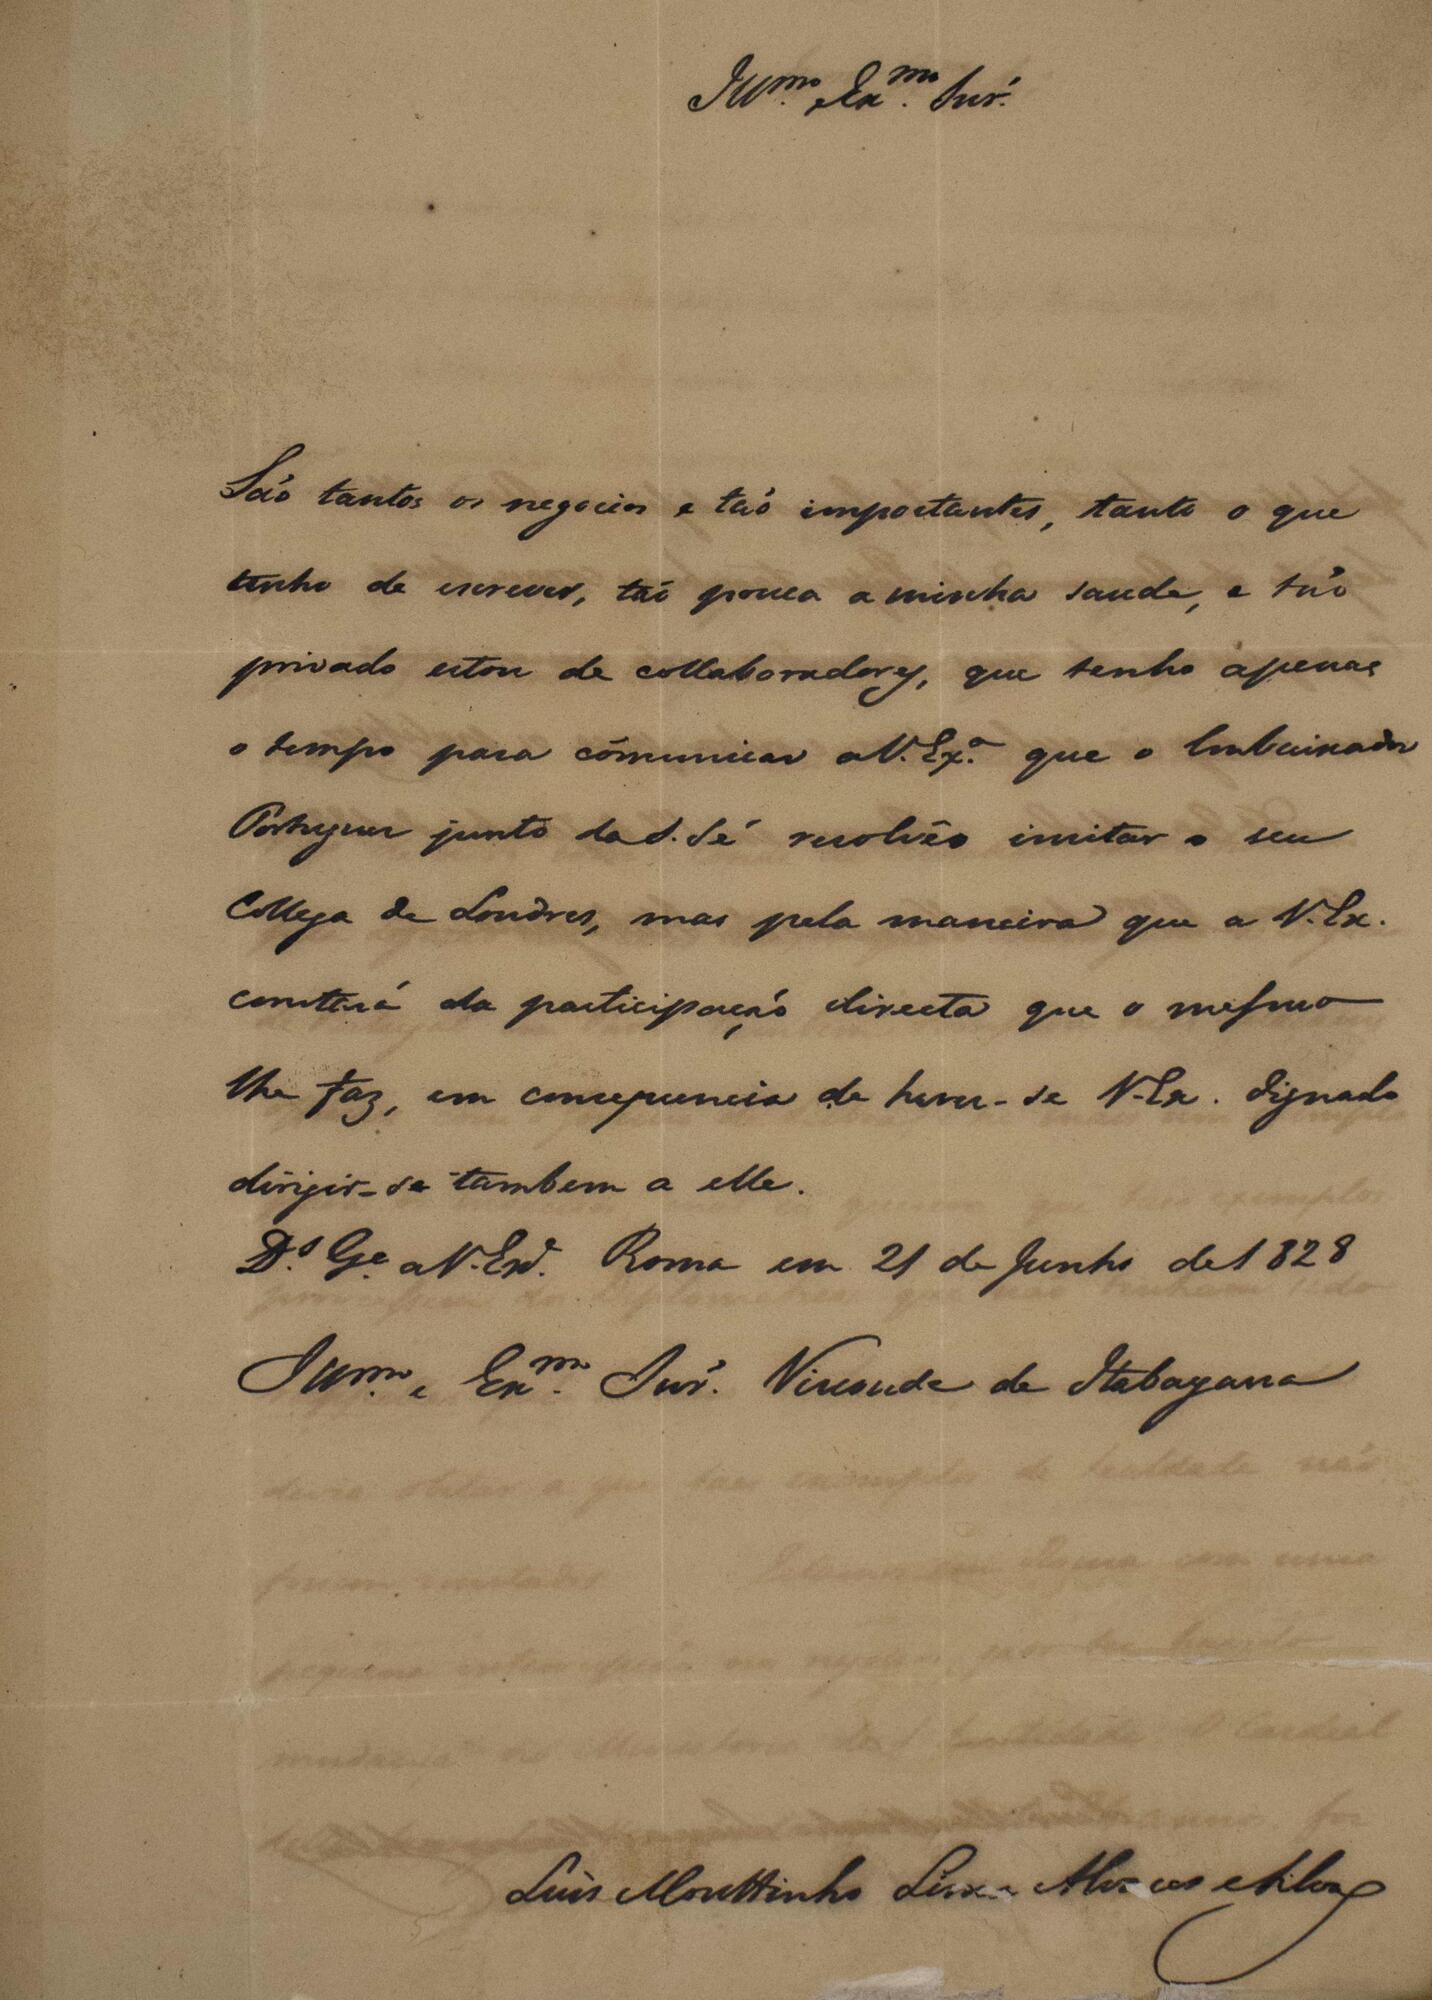 Ill.mo e Ex.mo Snr.
São tantos os negocios e taó importantes, tanto o que
tenho de escrever, taó pouca a minha saude, e taó
privado estou de collaboradores, que tenho apenas
o tempo para cõmunicar a V. Ex.a que o Embaixador
Portuguez junto da S. Sé resolvêo imitar o seu
Collega de Londres, mas pela maneira que a V. Ex.
constará da participação directa que o mesmo
lhe faz, em consequencia de haver-se V. Ex. dignado
dirigir-se tambem a elle.
D.s G.e a V. Ex.a Roma em 21 de Junho de 1828
Ill.mo e Ex.mo Snr. Visconde de Itabayana
Luis Mouttinho Lima Alvares e Silva